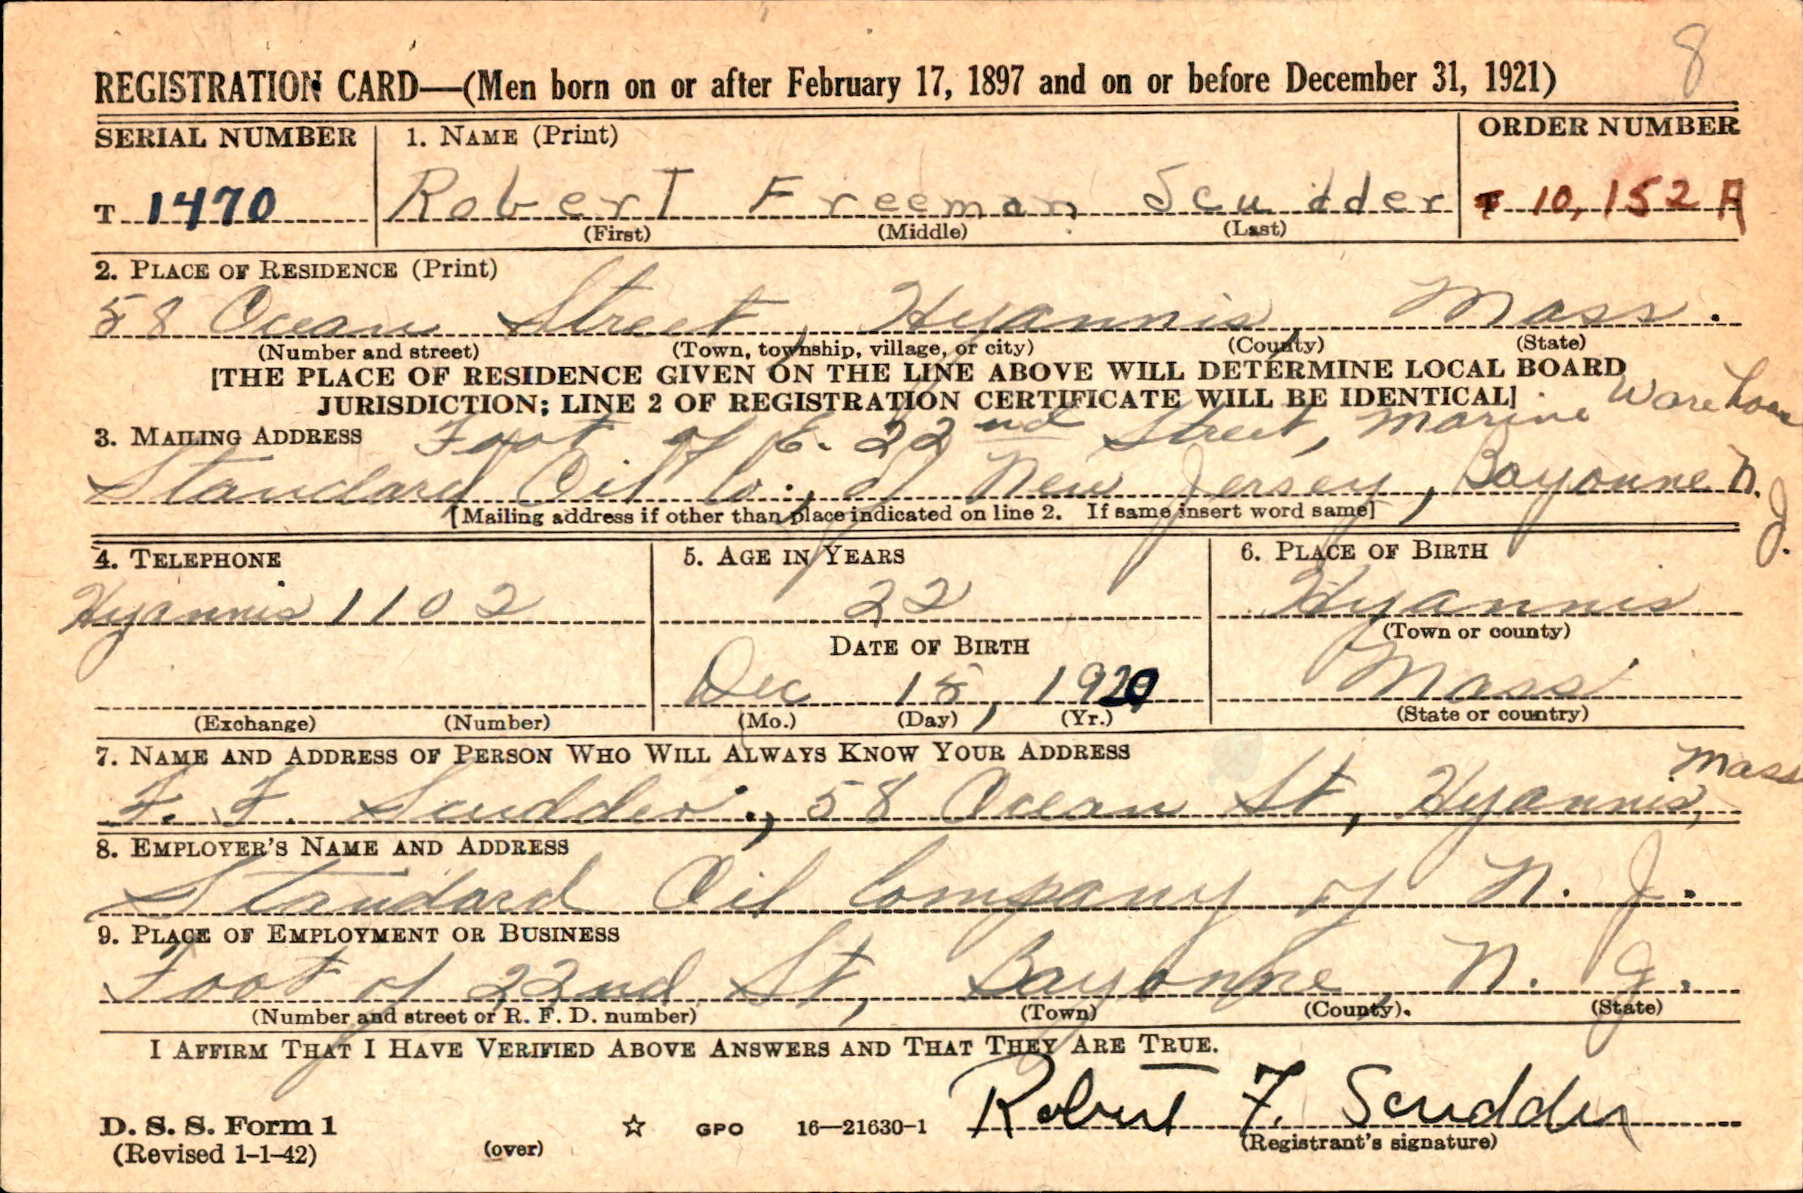 8
REGISTRATION CARD—(Men born on or after February 17, 1897 and on or before December 31, 1921)
SERIAL NUMBER 1. NAME (Print) ORDER NUMBER
T 1470 Robert Freeman Scudder T 10,152 A
(First) (Middle) (Last)
2. PLACE OF RESIDENCE (Print)
58 Ocean Street, Hyannis, Mass.
(Number and street) (Town, township, village, or city) (County) (State)
[THE PLACE OF RESIDENCE GIVEN ON THE LINE ABOVE WILL DETERMINE LOCAL BOARD
JURISDICTION; LINE 2 OF REGISTRATION CERTIFICATE WILL BE IDENTICAL]
3. MAILING ADDRESS Foot of E. 22nd Street, Marine Warehouse
Standard Oil Co., of New Jersey, Bayonne N. J.
[Mailing address if other than place indicated on line 2. If same insert word same]
4. TELEPHONE 5. AGE IN YEARS 6. PLACE OF BIRTH
Hyannis 1102 22 Hyannis
(Town or county)
DATE OF BIRTH
Dec 15, 1920 Mass
(Exchange) (Number) (Mo.) (Day) (Yr.) (State or country)
7. NAME AND ADDRESS OF PERSON WHO WILL ALWAYS KNOW YOUR ADDRESS
F. F. Scudder, 58 Ocean St, Hyannis, Mass
8. EMPLOYER'S NAME AND ADDRESS
Standard Oil Company of N. J.
9. PLACE OF EMPLOYMENT OR BUSINESS
Foot of 22nd St, Bayonne, N. J.
(Number and street or R. F. D. number) (Town) (County) (State)
I AFFIRM THAT I HAVE VERIFIED ABOVE ANSWERS AND THAT THEY ARE TRUE.
Robert F. Scudder
D. S. S. Form 1 ☆ GPO 16—21630-1 (Registrant's signature)
(Revised 1-1-42) (over)